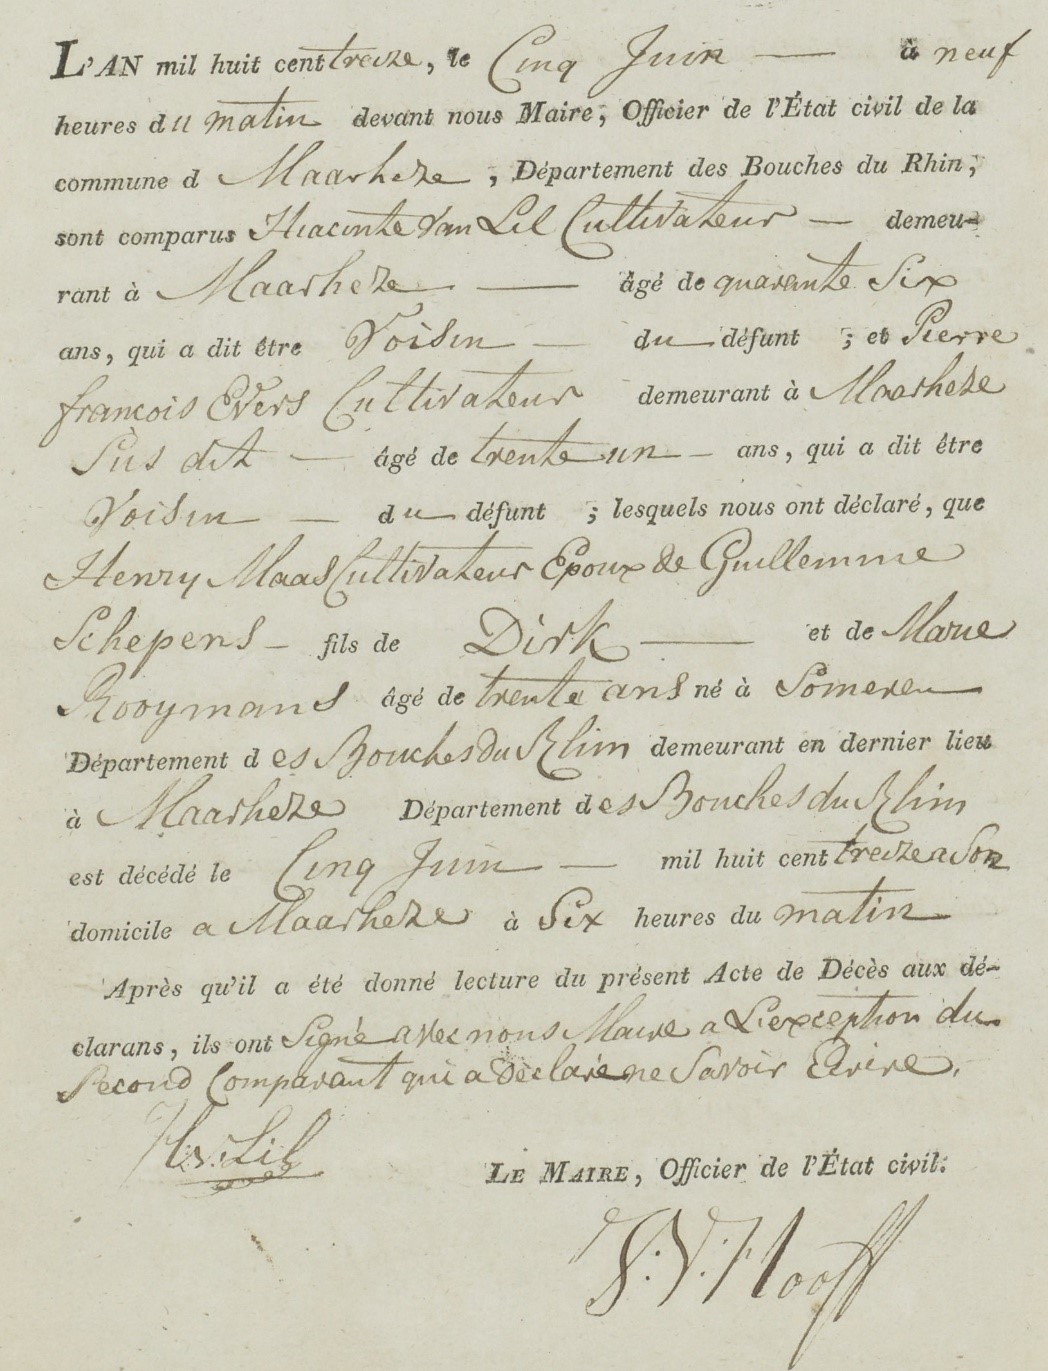 L'AN mil huit cent treize, le Cinq Juin — à neuf
heures du matin devant nous Maire, Officier de l'État civil de la
commune d Maarheze, Département des Bouches du Rhin,
sont comparus Hiacinte Van Lil Cultivateur — demeu-
rant à Maarheze — âgé de quarante Six
ans, qui a dit être Voisin — du défunt ; et Pierre
francois Evers Cultivateur demeurant à Maarheze
Sus dit — âgé de trente un — ans, qui a dit être
Voisin — du défunt ; lesquels nous ont déclaré, que
Henry Maas Cultivateur Epoux de Guillemme
Schepens — fils de Dirk — et de Marie
Rooymans âgé de trente ans né à Someren
Département des Bouches du Rhin demeurant en dernier lieu
à Maarheze Département des Bouches du Rhin
est décédé le Cinq Juin — mil huit cent treize a Son
domicile a Maarheze à Six heures du matin
Après qu'il a été donné lecture du présent Acte de Décès aux dé-
clarans, ils ont Signé avec nous Maire a L'exception du
Second Comparant qui a déclaré ne Savoir Ecrire.
H. v. Lil
LE MAIRE, Officier de l'État civil.
V. Hooff